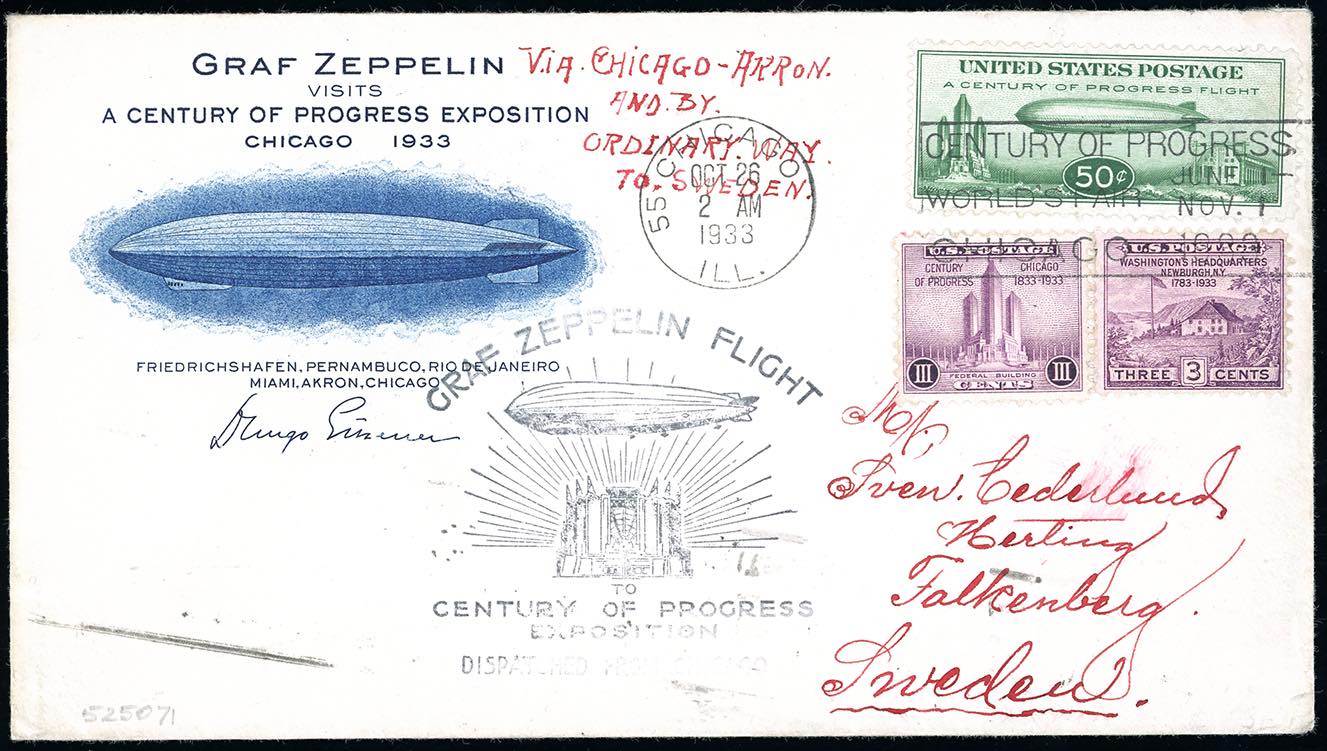 GRAF ZEPPELIN
VISITS
A CENTURY OF PROGRESS EXPOSITION
CHICAGO 1933
VIA. CHICAGO-AKRON.
AND. BY.
ORDINARY. WAY.
TO. SWEDEN.
55 CHICAGO
OCT 26
2 AM
1933
ILL.
UNITED STATES POSTAGE
A CENTURY OF PROGRESS FLIGHT
50¢
CENTURY OF PROGRESS
JUNE 1-
WORLD'S FAIR NOV. 1
CHICAGO 1933
U.S. POSTAGE
CENTURY OF PROGRESS
CHICAGO 1833-1933
FEDERAL BUILDING
III CENTS III
U.S. POSTAGE
WASHINGTON'S HEADQUARTERS
NEWBURGH, N.Y.
1783-1933
THREE 3 CENTS
FRIEDRICHSHAFEN, PERNAMBUCO, RIO DE JANEIRO
MIAMI, AKRON, CHICAGO
GRAF ZEPPELIN FLIGHT
TO
CENTURY OF PROGRESS
EXPOSITION
DISPATCHED FROM CHICAGO
Mr.
Sven. Cederlund,
Herting
Falkenberg.
Sweden.
525071